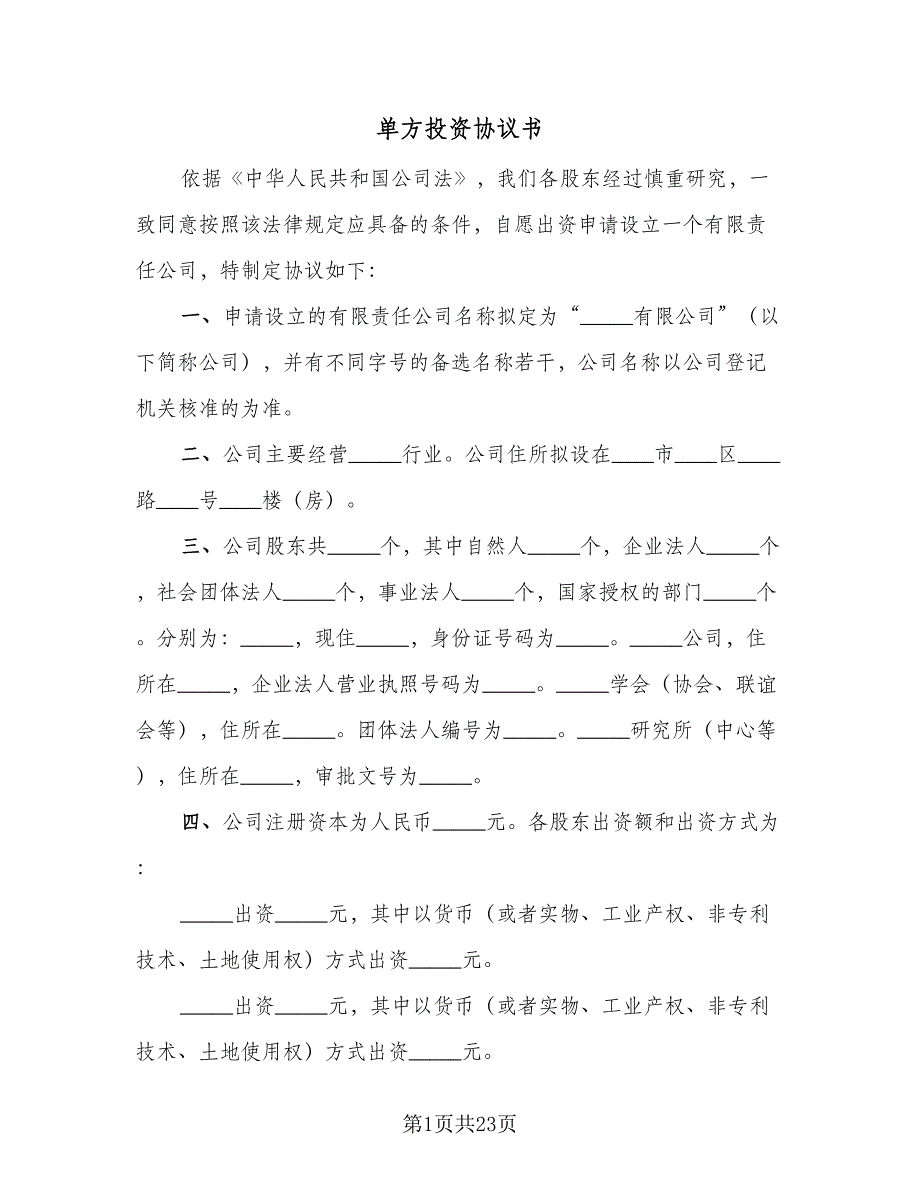 单方投资协议书
依据《中华人民共和国公司法》，我们各股东经过慎重研究，一
致同意按照该法律规定应具备的条件，自愿出资申请设立一个有限责
任公司，特制定协议如下：
一、申请设立的有限责任公司名称拟定为“_____有限公司”（以
下简称公司），并有不同字号的备选名称若干，公司名称以公司登记
机关核准的为准。
二、公司主要经营_____行业。公司住所拟设在____市____区____
路____号____楼（房）。
三、公司股东共_____个，其中自然人_____个，企业法人_____个
，社会团体法人_____个，事业法人_____个，国家授权的部门_____个
。分别为：_____，现住_____，身份证号码为_____。_____公司，住
所在_____，企业法人营业执照号码为_____。_____学会（协会、联谊
会等），住所在_____。团体法人编号为_____。_____研究所（中心等
），住所在_____，审批文号为_____。
四、公司注册资本为人民币_____元。各股东出资额和出资方式为
：
_____出资_____元，其中以货币（或者实物、工业产权、非专利
技术、土地使用权）方式出资_____元。
_____出资_____元，其中以货币（或者实物、工业产权、非专利
技术、土地使用权）方式出资_____元。
第1页共23页